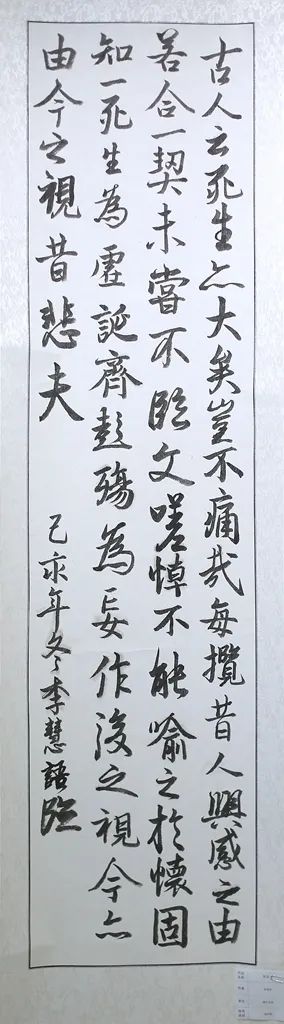 古人云死生亦大矣豈不痛哉每攬昔人興感之由
若合一契未嘗不臨文嗟悼不能喻之於懷固
知一死生為虛誕齊彭殤為妄作後之視今亦
由今之視昔悲夫
己亥年冬李慧語臨